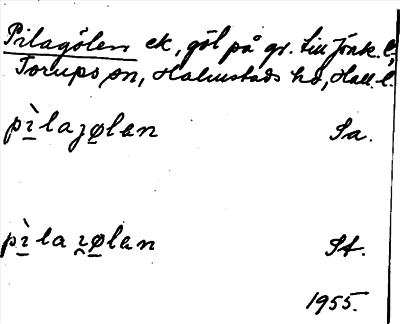 Pilagölen ek, göl på gr. till Jönk. l.,
Torups sn, Halmstads hd, Hall. l.
pìlaȷø̱lan Sa.
pìla ɿø̱lan St.
1955.